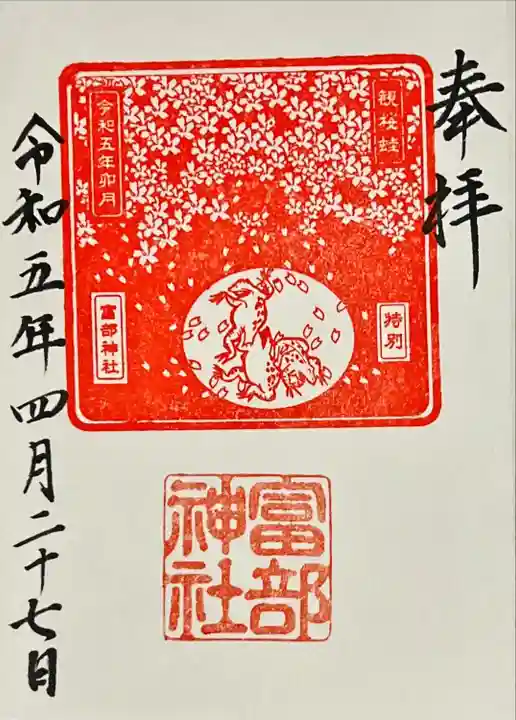 奉拝
観桜蛙
令和五年卯月
特別
富部神社
富部神社
令和五年四月二十七日